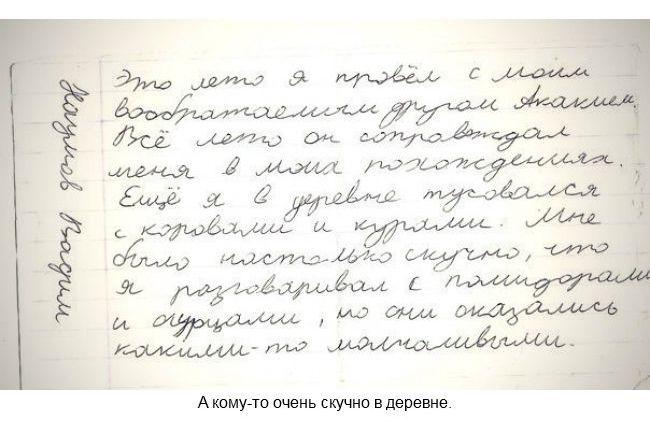 Наумов Вадим
Это лето я провёл с моим
вообратаемым другом Акакием.
Всё лето он сопровждал
меня в моих похождениях.
Ещё я в деревне тусовался
с коровами и курами. Мне
было настолько скучно, что
я разговаривал с помидорами
и огурцами, но они оказались
какими-то молчаливыми.
А кому-то очень скучно в деревне.